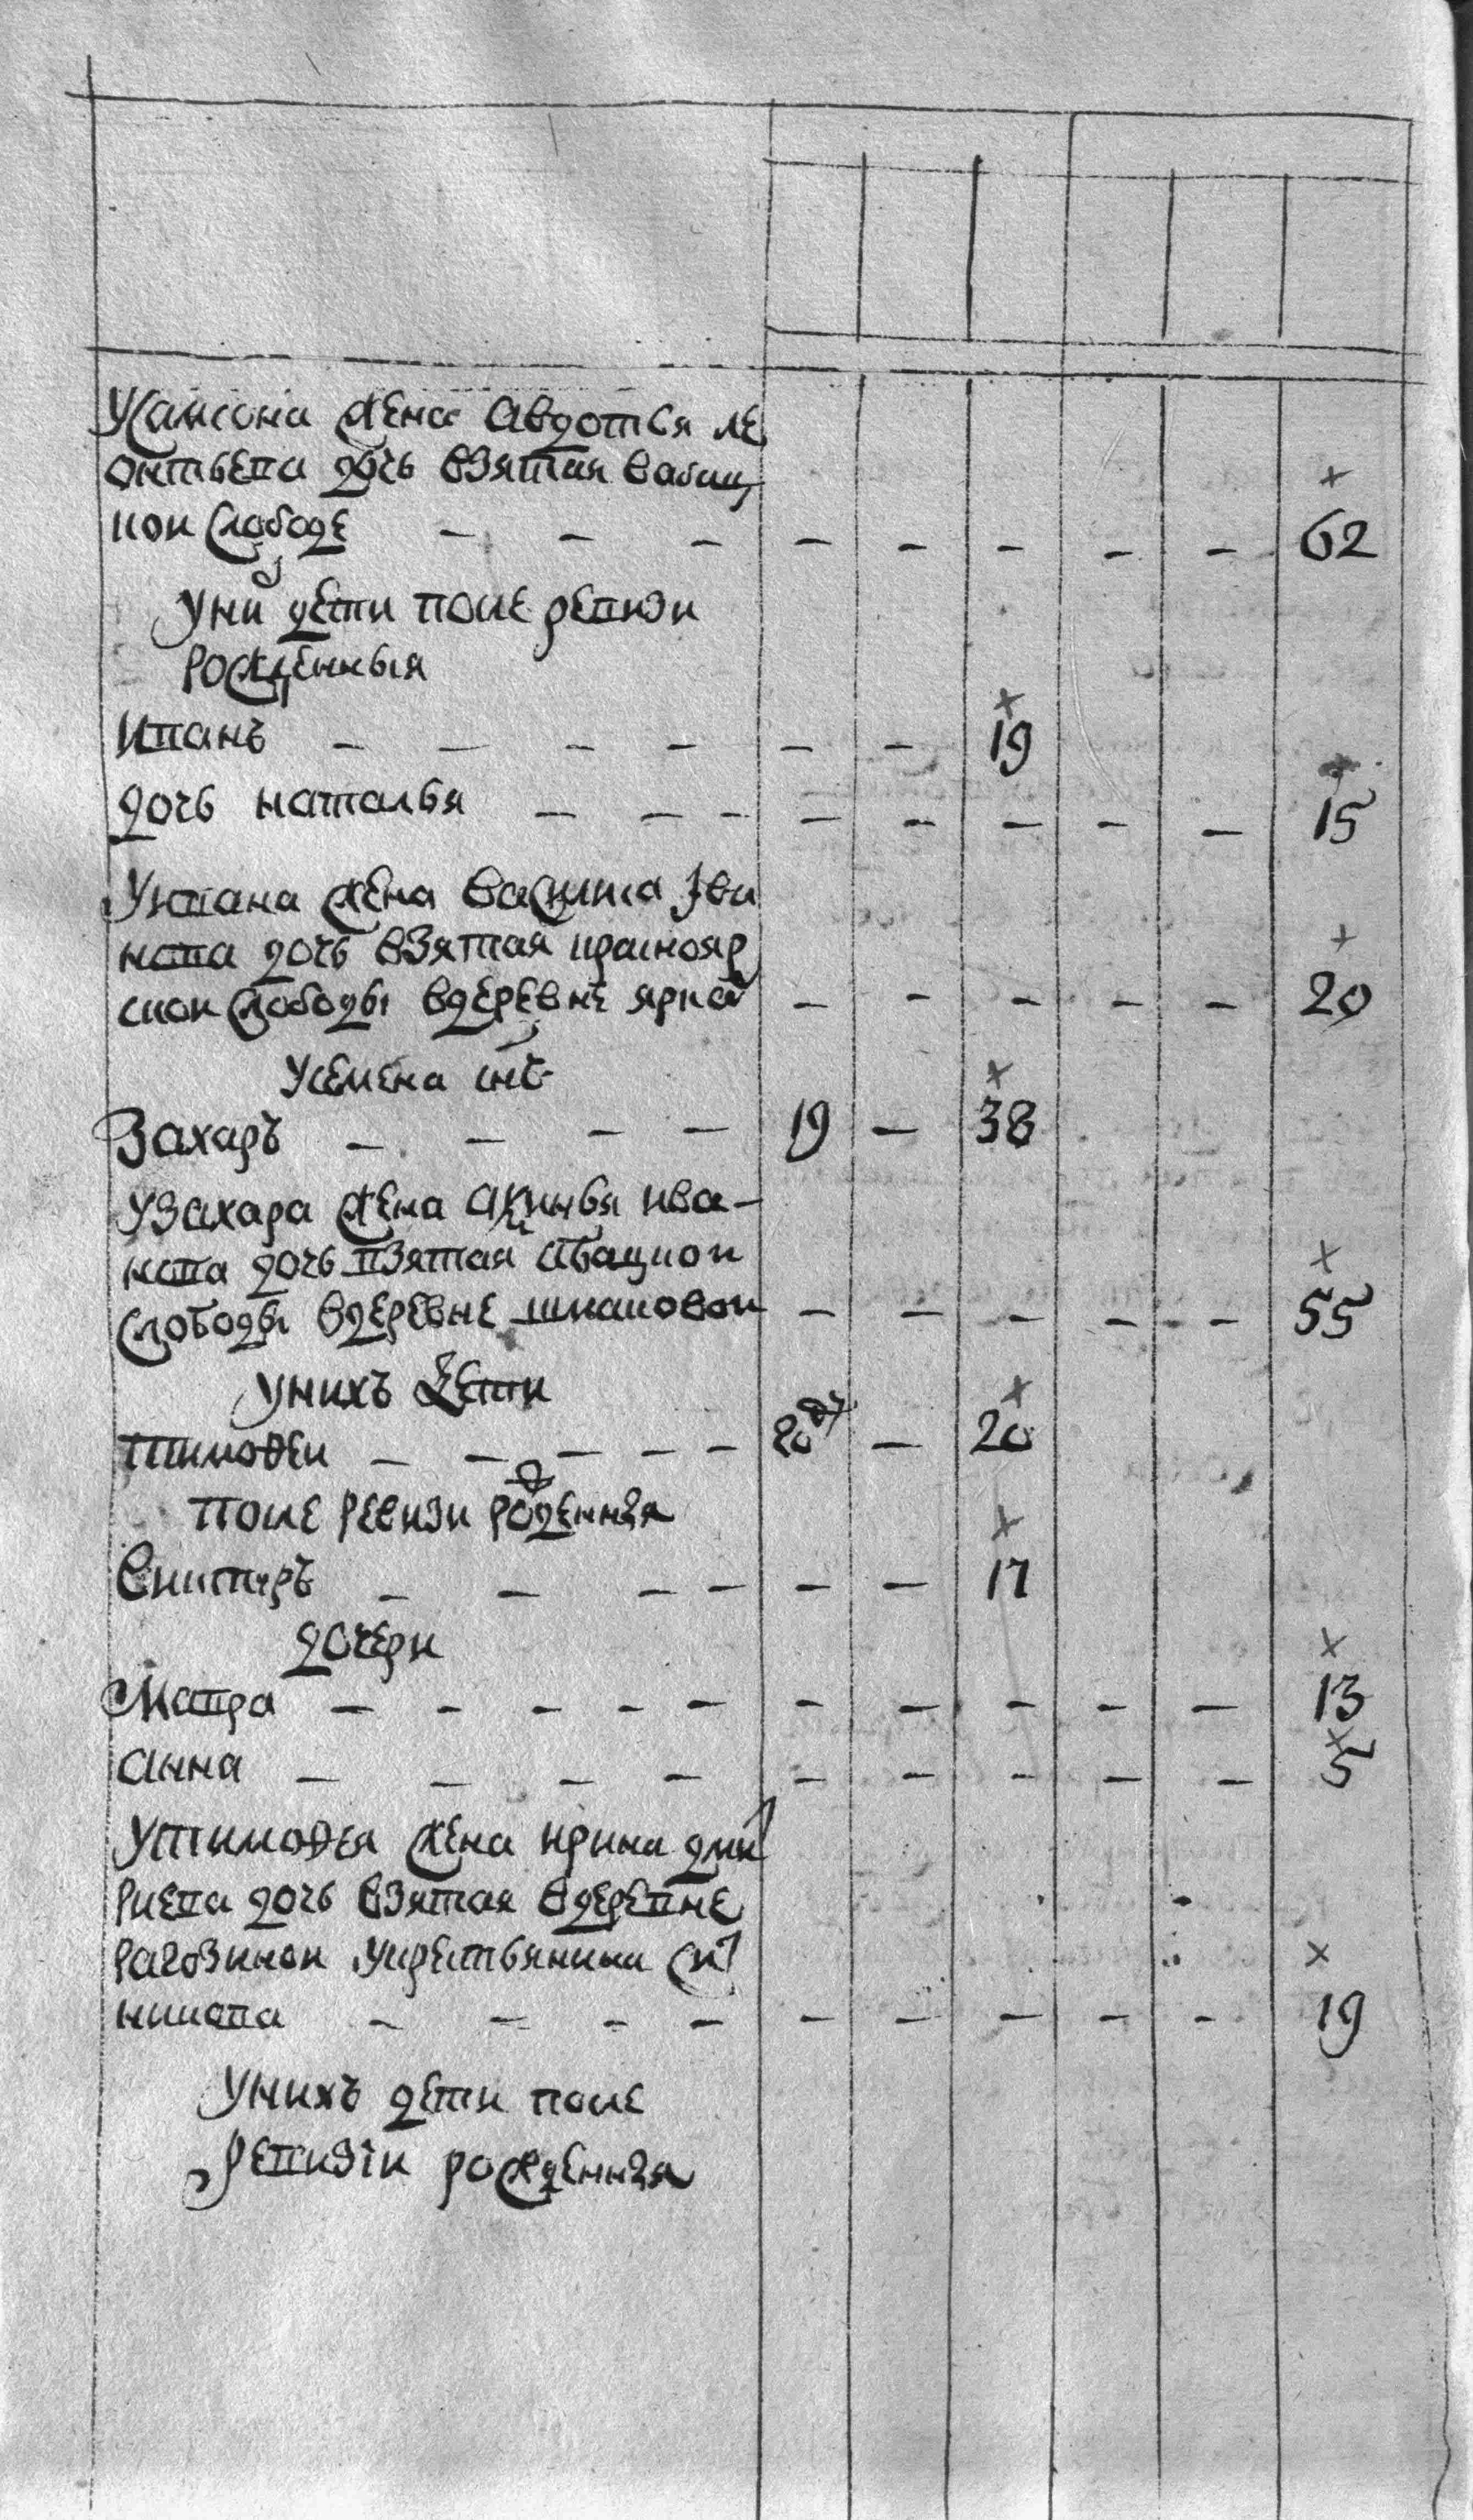 У самсона жена авдотья ле
онтьева дочь взятая вабац
кои слободе — — — — — — — — 62
У ни дети после ревизи
рожденныя
Иванъ — — — — — — 19
дочь наталья — — — — — — — — 15
У ивана жена василиса Ива
нова дочь взятая краснояр
скои слободы вдеревне яркой — — — — — 20
У семена снъ
Захаръ — — — — 19 — 38
У захара жена акилина ива-
нова дочь взятая абацкои
слободы вдеревне шмаковои — — — — — 55
У нихъ дети
тимофеи — — — — — — 20
после ревизи рожденныя
— — — — — — 17
дочери
Мавра — — — — — — — — — — 13
анна — — — — — — — — — 5
У тимофея жена ирина дми
риева дочь взятая вдеревне
рагозинои укрестьянина си
никова — — — — — — — — — 19
У нихъ дети после
ревизiи рожденныя